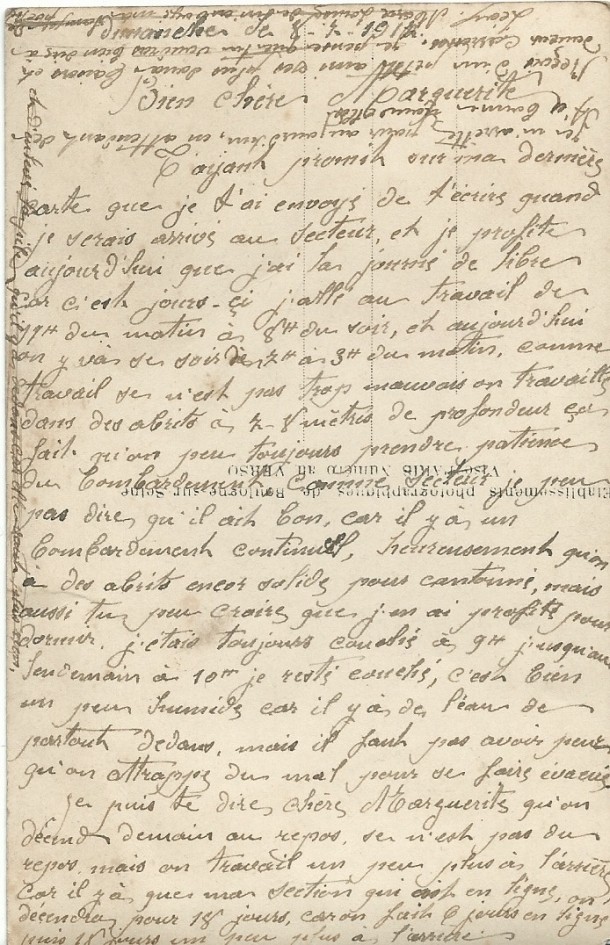 Dimanche de 8-7-1917.
Bien chère Marguerite
T'ayant promit sur ma dernière
carte que je t'ai envoyé de t'écrire quand
je serais arrivé au secteur, et je profite
aujourd'hui que j'ai la journé de libre
car c'est jours-çi j'allé au travail de
du matin à 8H du soir, et aujourd'hui
on y và se soir de à 3H du matin, comme
travail se n'est pas trop mauvais on travaille
dans des abrits à 7-8 mètres de profondeur ça
fait qu'on peu toujours prendre patience
du bombardement comme secteur je peu
pas dire qu'il ait bon, car il y à un
bombardement continuel, heureusement qu'on
à des abrits encor solide pour cantonné, mais
aussi tu peu croire que j'en ai profité pour
dormir, j'étais toujours couché à 9H jusqu'au
lendemain à 10H je resté couché, c'est bien
un peu humide car il y à de l'eau de
partout dedans, mais il faut pas avoir peur
qu'on attrappe du mal pour se faire évacué
Je puis te dire chère Marguerite qu'on
décend demain au repos, se n'est pas du
repos, mais on travail un peu plus à l'arrière
car il y à que ma section qui est en ligne, on
decendra pour 18 jours, car on fait 6 jours en ligne
puis 18 jours un peu plus à l'arrière
Etablissements photographiques de Boulogne-sur-Seine
VISÉ PARIS Numéro au VERSO
aujourd'hui, en attendant de
Reçois d'un petit ami ses plus doux baisers et